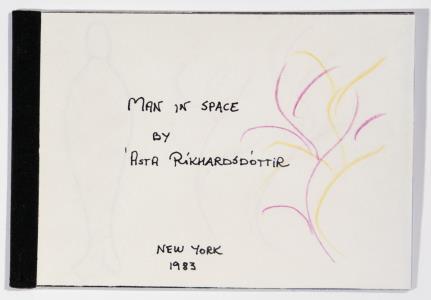 MAN IN SPACE
BY
ÁSTA RÍKHARÐSDÓTTIR
NEW YORK
1983